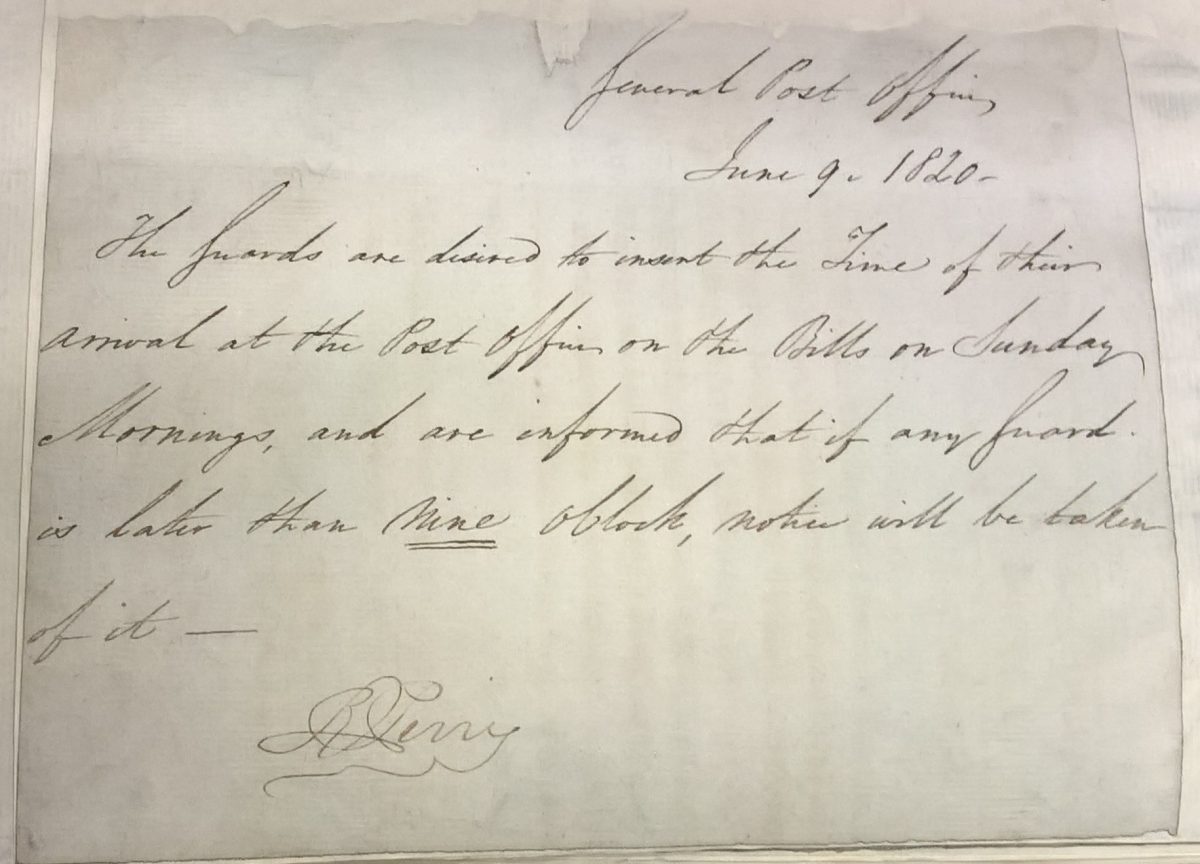 General Post Office
June 9. 1820-
The Guards are desired to insert the Time of their
arrival at the Post Office on the Bills on Sunday
Mornings, and are informed that if any Guard.
is later than Nine OClock, notice will be taken
of it —
R Ferris